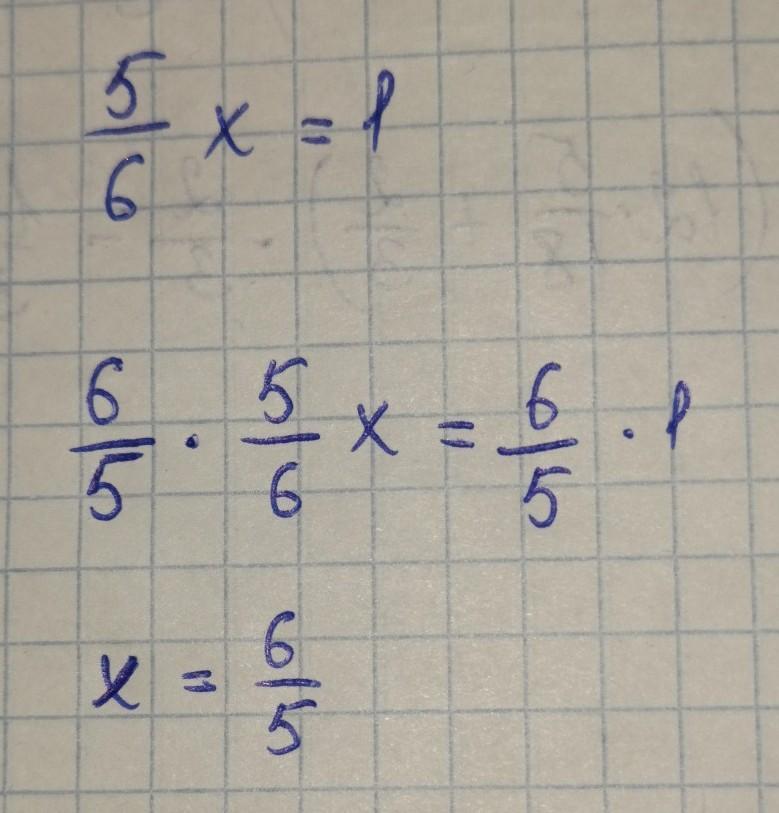 5/6 x = 1
6/5 · 5/6 x = 6/5 · 1
x = 6/5